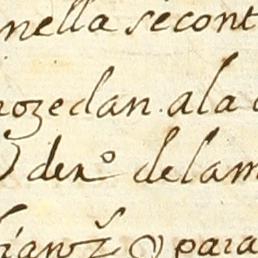 nella secont
rozedan ala
de n.º delam
para